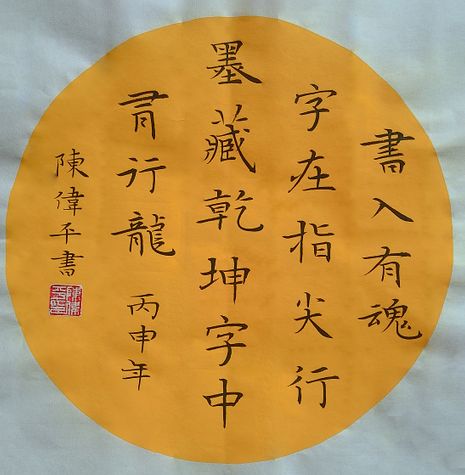 書入有魂
字在指尖行
墨藏乾坤字中
看行龍 丙申年
陳偉平書